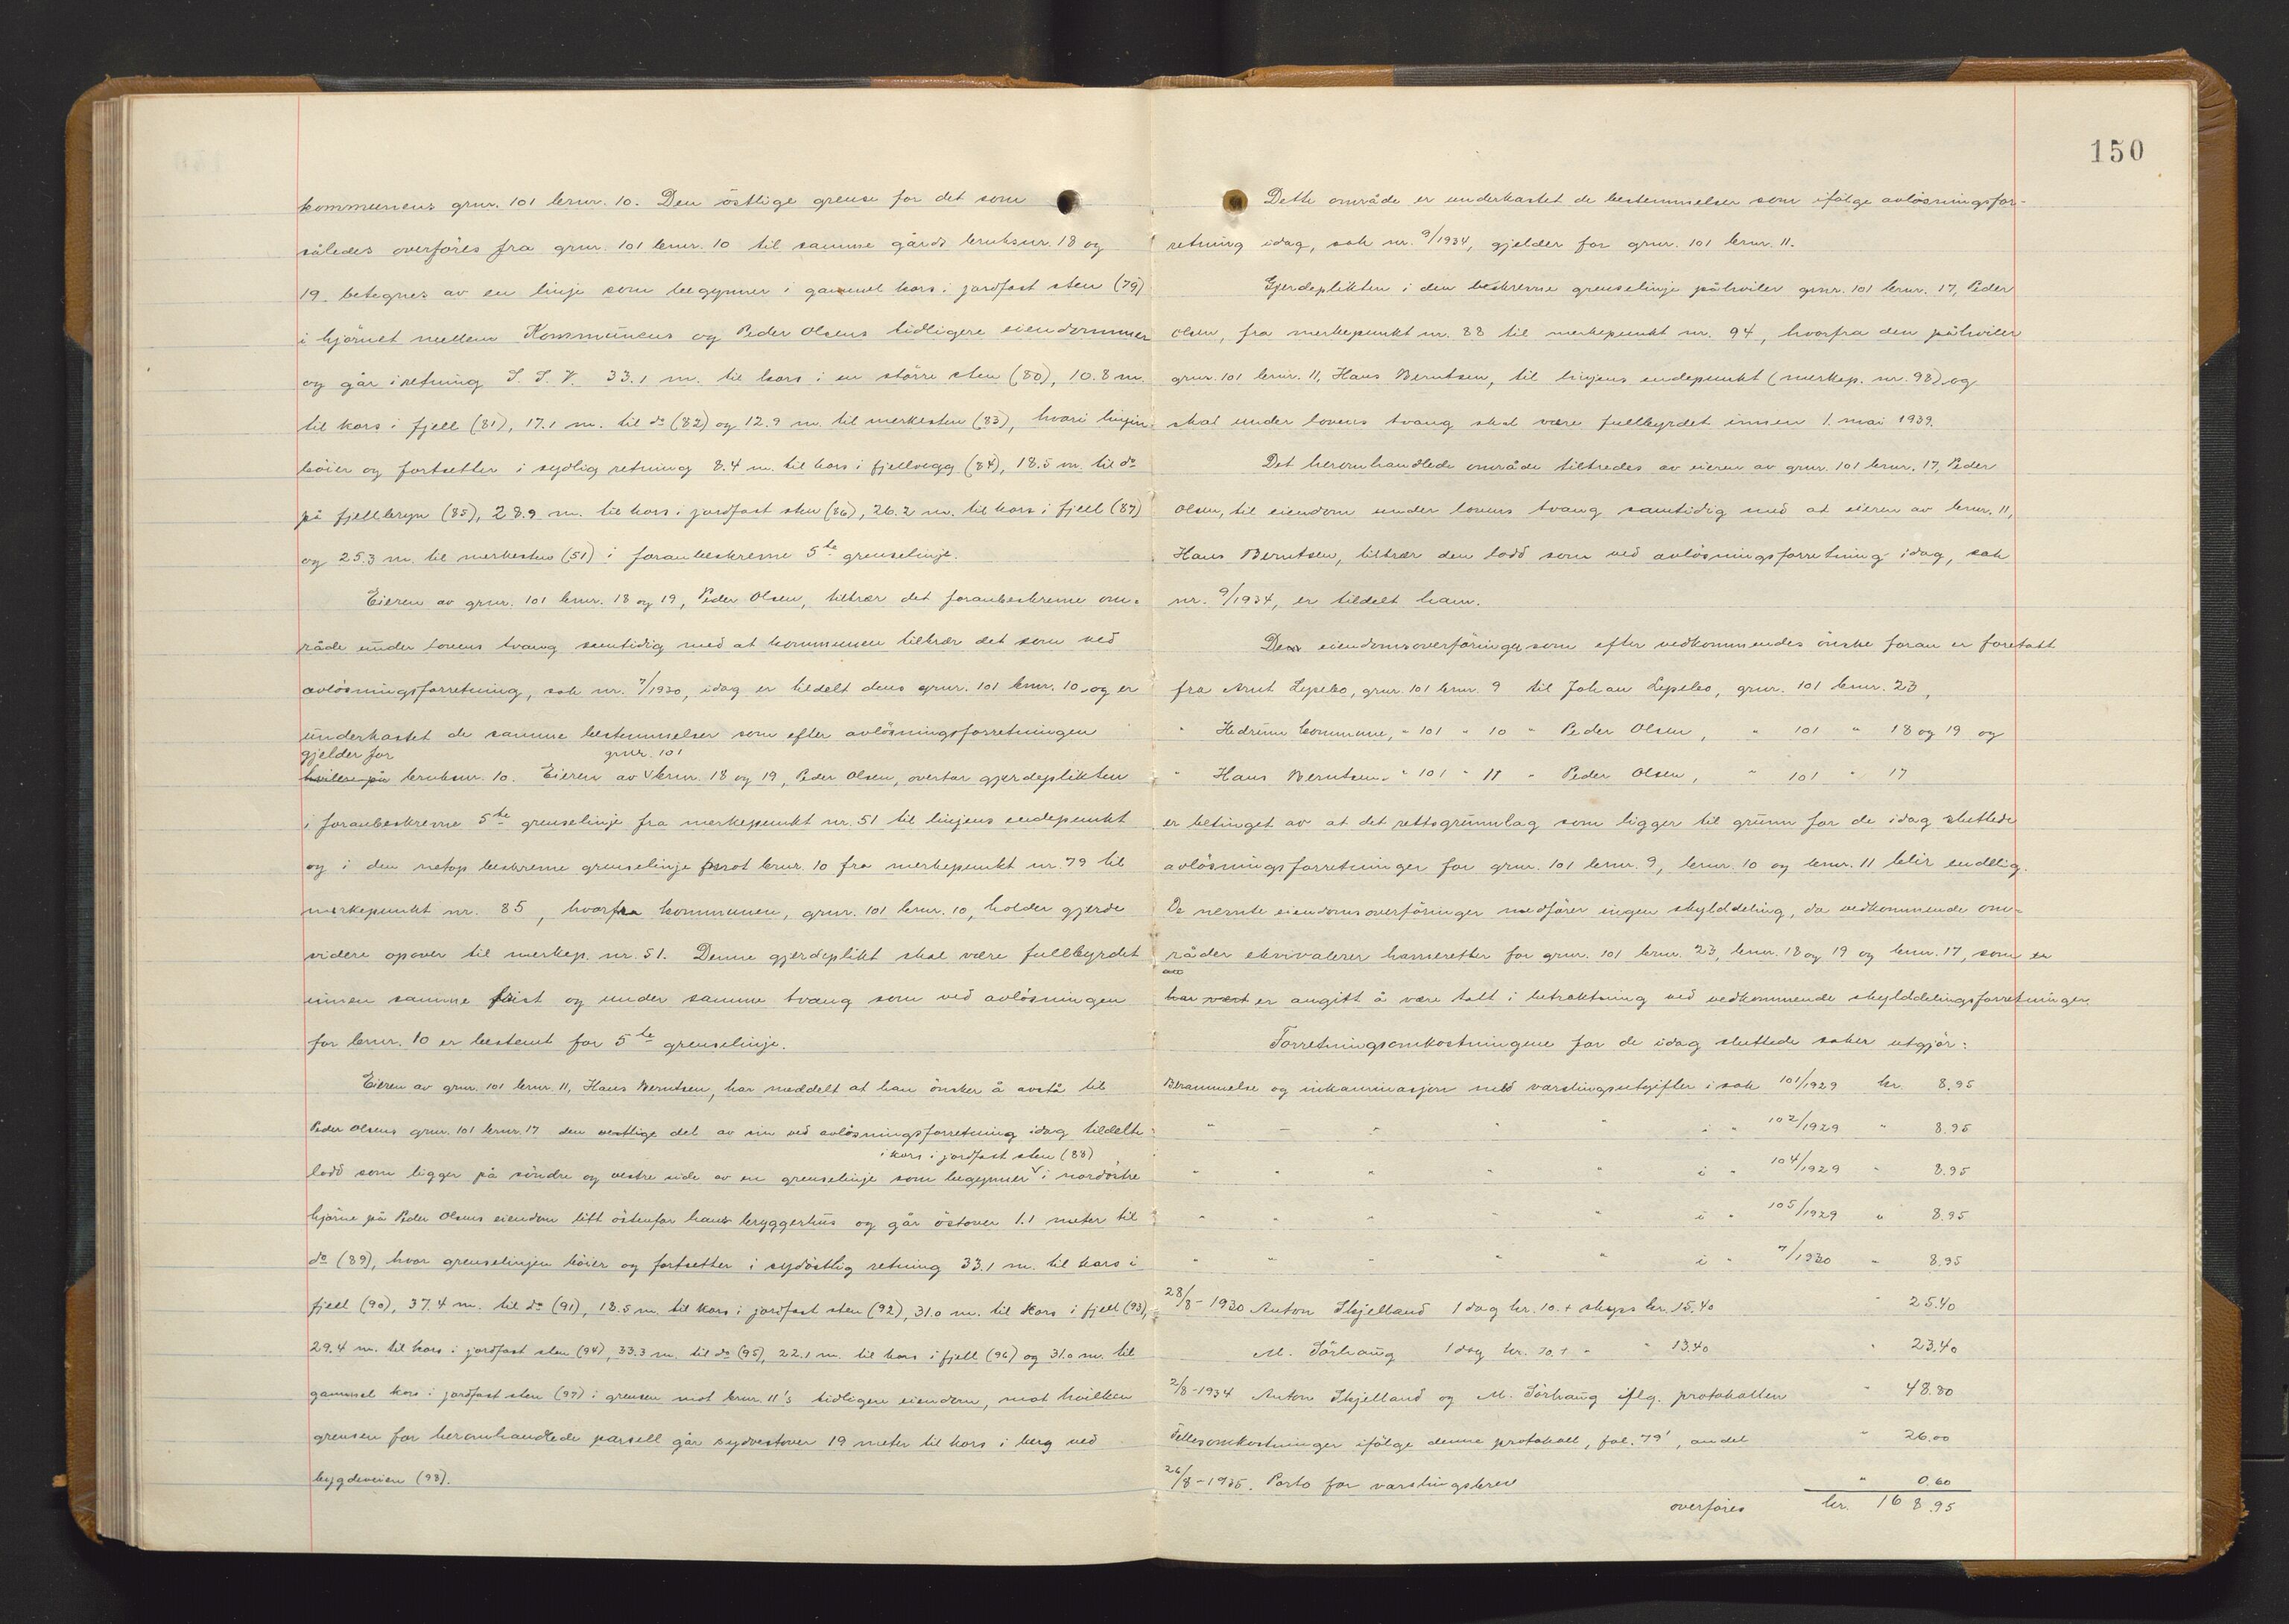 kommunens grnr. 101 brnr. 10. Den östlige grense for det som
således overföres fra grnr. 101 brnr. 10 til samme gårds bruksnr. 18 og
19 betegnes av en linje som begynner i gammel kors i jordfast sten (79)
i hjörnet mellem Kommunens og Peder Olsens tidligere eiendommer
og går i retning S. S. V. 33.1 m. til kors i en större sten (80), 10.8 m.
til kors i fjell (81), 17.1 m. til do (82) og 12.9 m. til merkesten (83), hvori linjen
böier og fortsetter i sydlig retning 8.4 m. til kors i fjellvegg (84), 18.5 m. til do
på fjellbryn (85), 28.9 m. til kors i jordfast sten (86), 26.2 m. til kors i fjell (87)
og 25.3 m. til merkesten (51) i foranbeskrevne 5te grenselinje.
Eieren av grnr. 101 brnr. 18 og 19, Peder Olsen, tiltrær det foranbeskrevne om-
råde under lovens tvang samtidig med at kommunen tiltrær det som ved
avlösningsforretning, sak nr. 7/1930, idag er tildelt dens grnr. 101 brnr. 10 og er
underkastet de samme bestemmelser som efter avlösningsforretningen
gjelder for grnr. 101
hviler på bruksnr. 10. Eieren av brnr. 18 og 19, Peder Olsen, overtar gjerdeplikten
i foranbeskrevne 5te grenselinje fra merkepunkt nr. 51 til linjens endepunkt
og i den netop beskrevne grenselinje mot brnr. 10 fra merkepunkt nr. 79 til
merkepunkt nr. 85, hvorfra kommunen, grnr. 101 brnr. 10, holder gjerde
videre opover til merkep. nr. 51. Denne gjerdeplikt skal være fullbyrdet
innen samme frist og under samme tvang som ved avlösningen
for brnr. 10 er bestemt for 5te grenselinje.
Eieren av grnr. 101 brnr. 11, Hans Berntsen, har meddelt at han önsker å avstå til
Peder Olsens grnr. 101 brnr. 17 den vestlige del av sin ved avlösningsforretning idag tildelte
i kors i jordfast sten (88)
lodd som ligger på söndre og vestre side av en grenselinje som begynner i nordöstre
hjörne på Peder Olsens eiendom litt östenfor hans bryggerhus og går östover 1.1 meter til
do (89), hvor grenselinjen böier og fortsetter i sydöstlig retning 33.1 m. til kors i
fjell (90), 37.4 m. til do (91), 18.5 m. til kors i jordfast sten (92), 31.0 m. til kors i fjell (93),
29.4 m. til kors i jordfast sten (94), 33.3 m. til do (95), 22.1 m. til kors i fjell (96) og 31.0 m. til
gammel kors i jordfast sten (97) i grensen mot brnr. 11's tidligere eiendom, mot hvilken
grensen for heromhandlede parsell går sydvestover 19 meter til kors i berg ved
bygdeveien (98).
150
Dette område er underkastet de bestemmelser som ifölge avlösningsfor-
retning idag, sak nr. 9/1934, gjelder for grnr. 101 brnr. 11.
Gjerdeplikten i den beskrevne grenselinje påhviler grnr. 101 brnr. 17, Peder
Olsen, fra merkepunkt nr. 88 til merkepunkt nr. 94, hvorfra den påhviler
grnr. 101 brnr. 11, Hans Berntsen, til linjens endepunkt (merkep. nr. 98) og
skal under lovens tvang skal være fullbyrdet innen 1. mai 1939.
Det heromhandlede område tiltredes av eieren av grnr. 101 brnr. 17, Peder
Olsen, til eiendom under lovens tvang samtidig med at eieren av brnr. 11,
Hans Berntsen, tiltrær den lodd som ved avlösningsforretning idag, sak
nr. 9/1934, er tildelt ham.
De eiendomsoverföringer som efter vedkommendes önske foran er foretatt
fra Arnt Lysebo, grnr. 101 brnr. 9 til Johan Lysebo, grnr. 101 brnr. 23,
" Hedrum kommune, " 101 " 10 " Peder Olsen, " 101 " 18 og 19 og
" Hans Berntsen " 101 " 11 " Peder Olsen, " 101 " 17
er betinget av at det rettsgrunnlag som ligger til grunn for de idag sluttede
avlösningsforretninger for grnr. 101 brnr. 9, brnr. 10 og brnr. 11 blir endelig.
De nevnte eiendomsoverföringer medförer ingen skylddeling, da vedkommende om-
råder ekvivalerer havneretter for grnr. 101 brnr. 23, brnr. 18 og 19 og brnr. 17, som er
har vært er angitt å være tatt i betraktning ved vedkommende skylddelingsforretninger.
Forretningsomkostningene for de idag sluttede saker utgjör:
Berammelse og inkaminasjon med varslingsutgifter i sak 101/1929 kr. 8.95
" " " " " i " 102/1929 " 8.95
" " " " " i " 104/1929 " 8.95
" " " " " i " 105/1929 " 8.95
" " " " " i " 7/1930 " 8.95
28/8-1930 Anton Skjelland 1 dag kr. 10.+ skyss kr. 15.40 " 25.40
M. Sörhaug 1 dag kr. 10.+ " " 13.40 " 23.40
2/8-1934 Anton Skjelland og M. Sörhaug iflg. protokollen " 48.80
Fellesomkostninger ifölge denne protokoll, fol. 79', andel " 26.00
26/8-1935. Porto for varslingsbrev " 0.60
overföres kr. 168.95